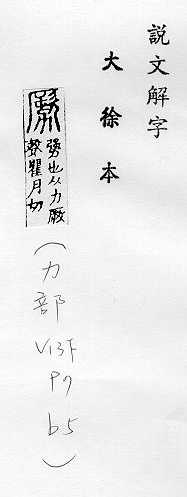 說文解字
大徐本
勥也从力厥
聲瞿月切
(力部 V13下 P7 b5)